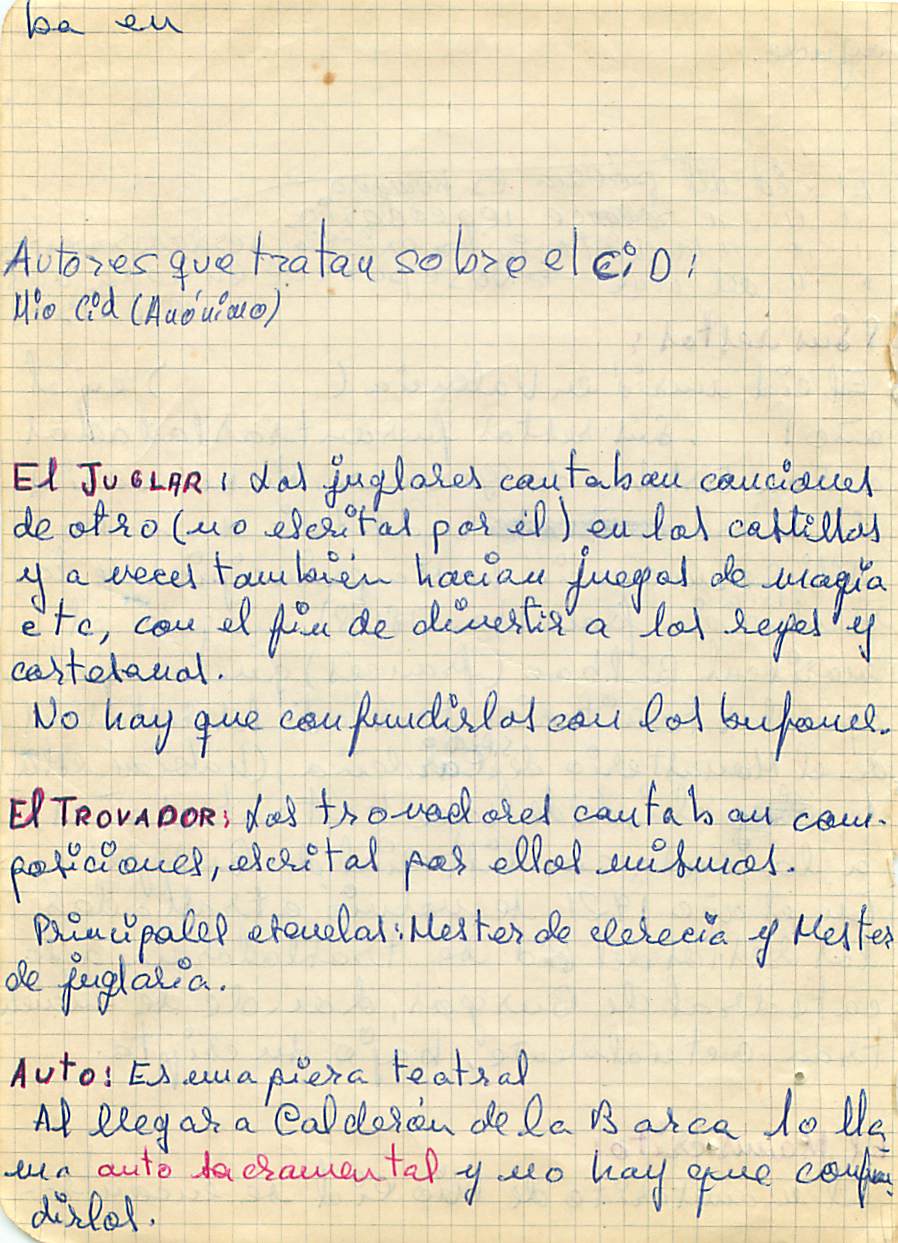 ba en
Autores que tratan sobre el CiD:
Mio Cid (Anónimo)
El JUGLAR: Los juglares cantaban canciones
de otro (no escritas por él) en los castillos
y a veces también hacian juegos de magia
etc, con el fin de divertir a los reyes y
cortesanos.
No hay que confundirlos con los bufones.
El TROVADOR: Los trovadores cantaban com-
posiciones, escritas por ellos mismos.
Principales escuelas: Mester de clerecia y Mester
de juglaria.
AUTO: Es una pieza teatral
Al llegar a Calderón de la Barca lo lla
ma auto sacramental y no hay que confun-
dirlos.